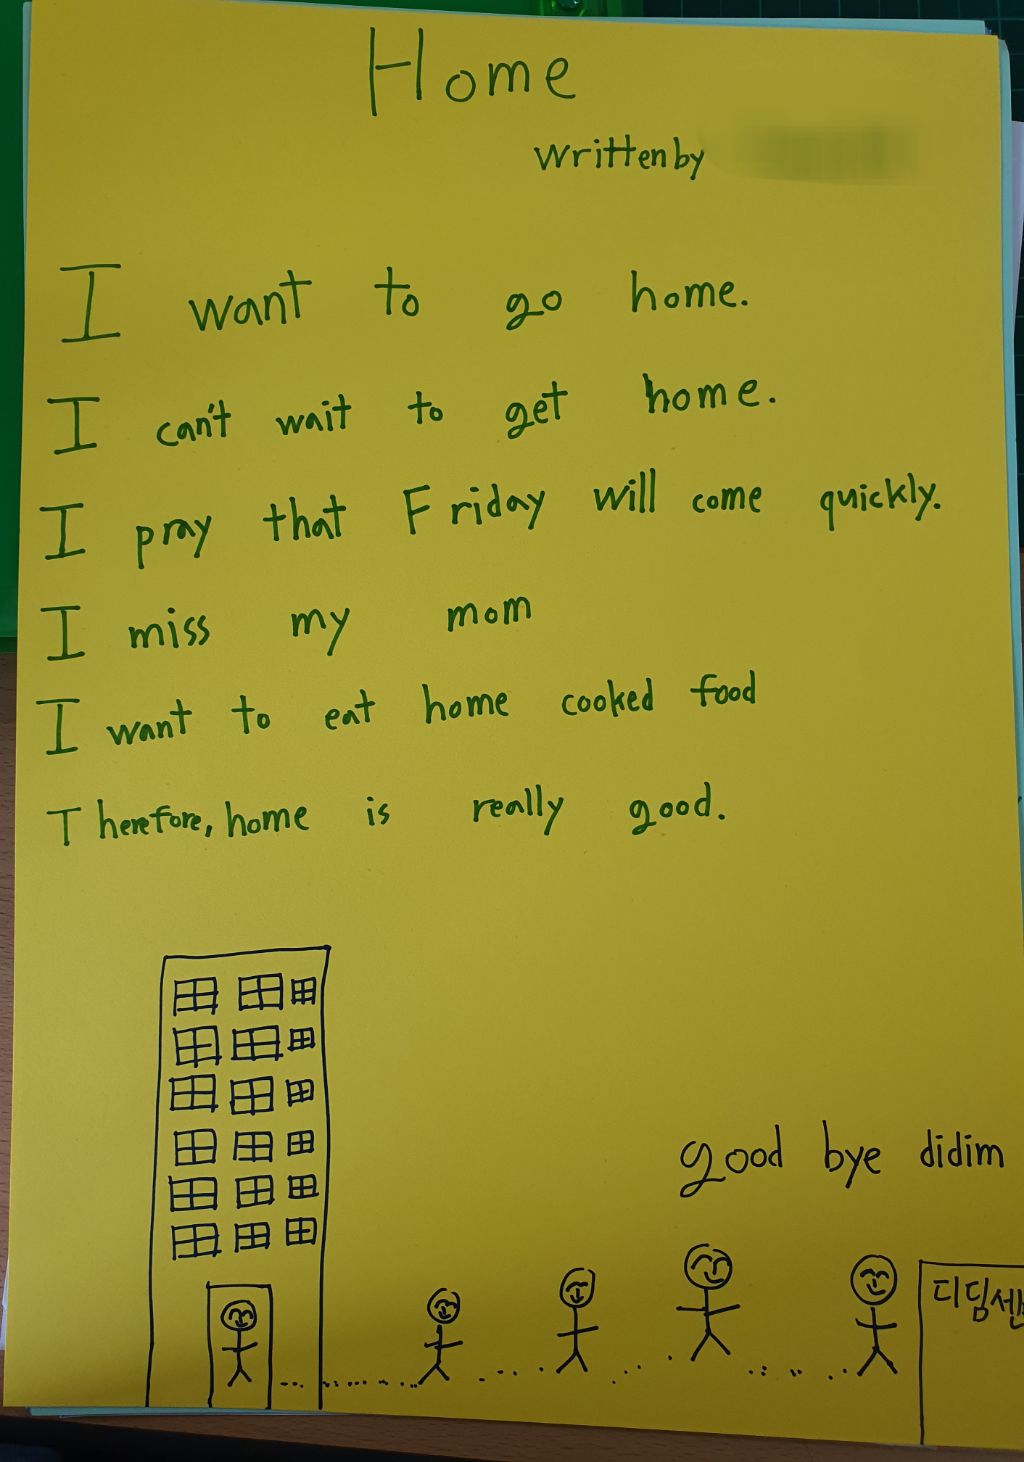 Home
written by
I want to go home.
I can't wait to get home.
I pray that Friday will come quickly.
I miss my mom
I want to eat home cooked food
Therefore, home is really good.
good bye didim
디딤센